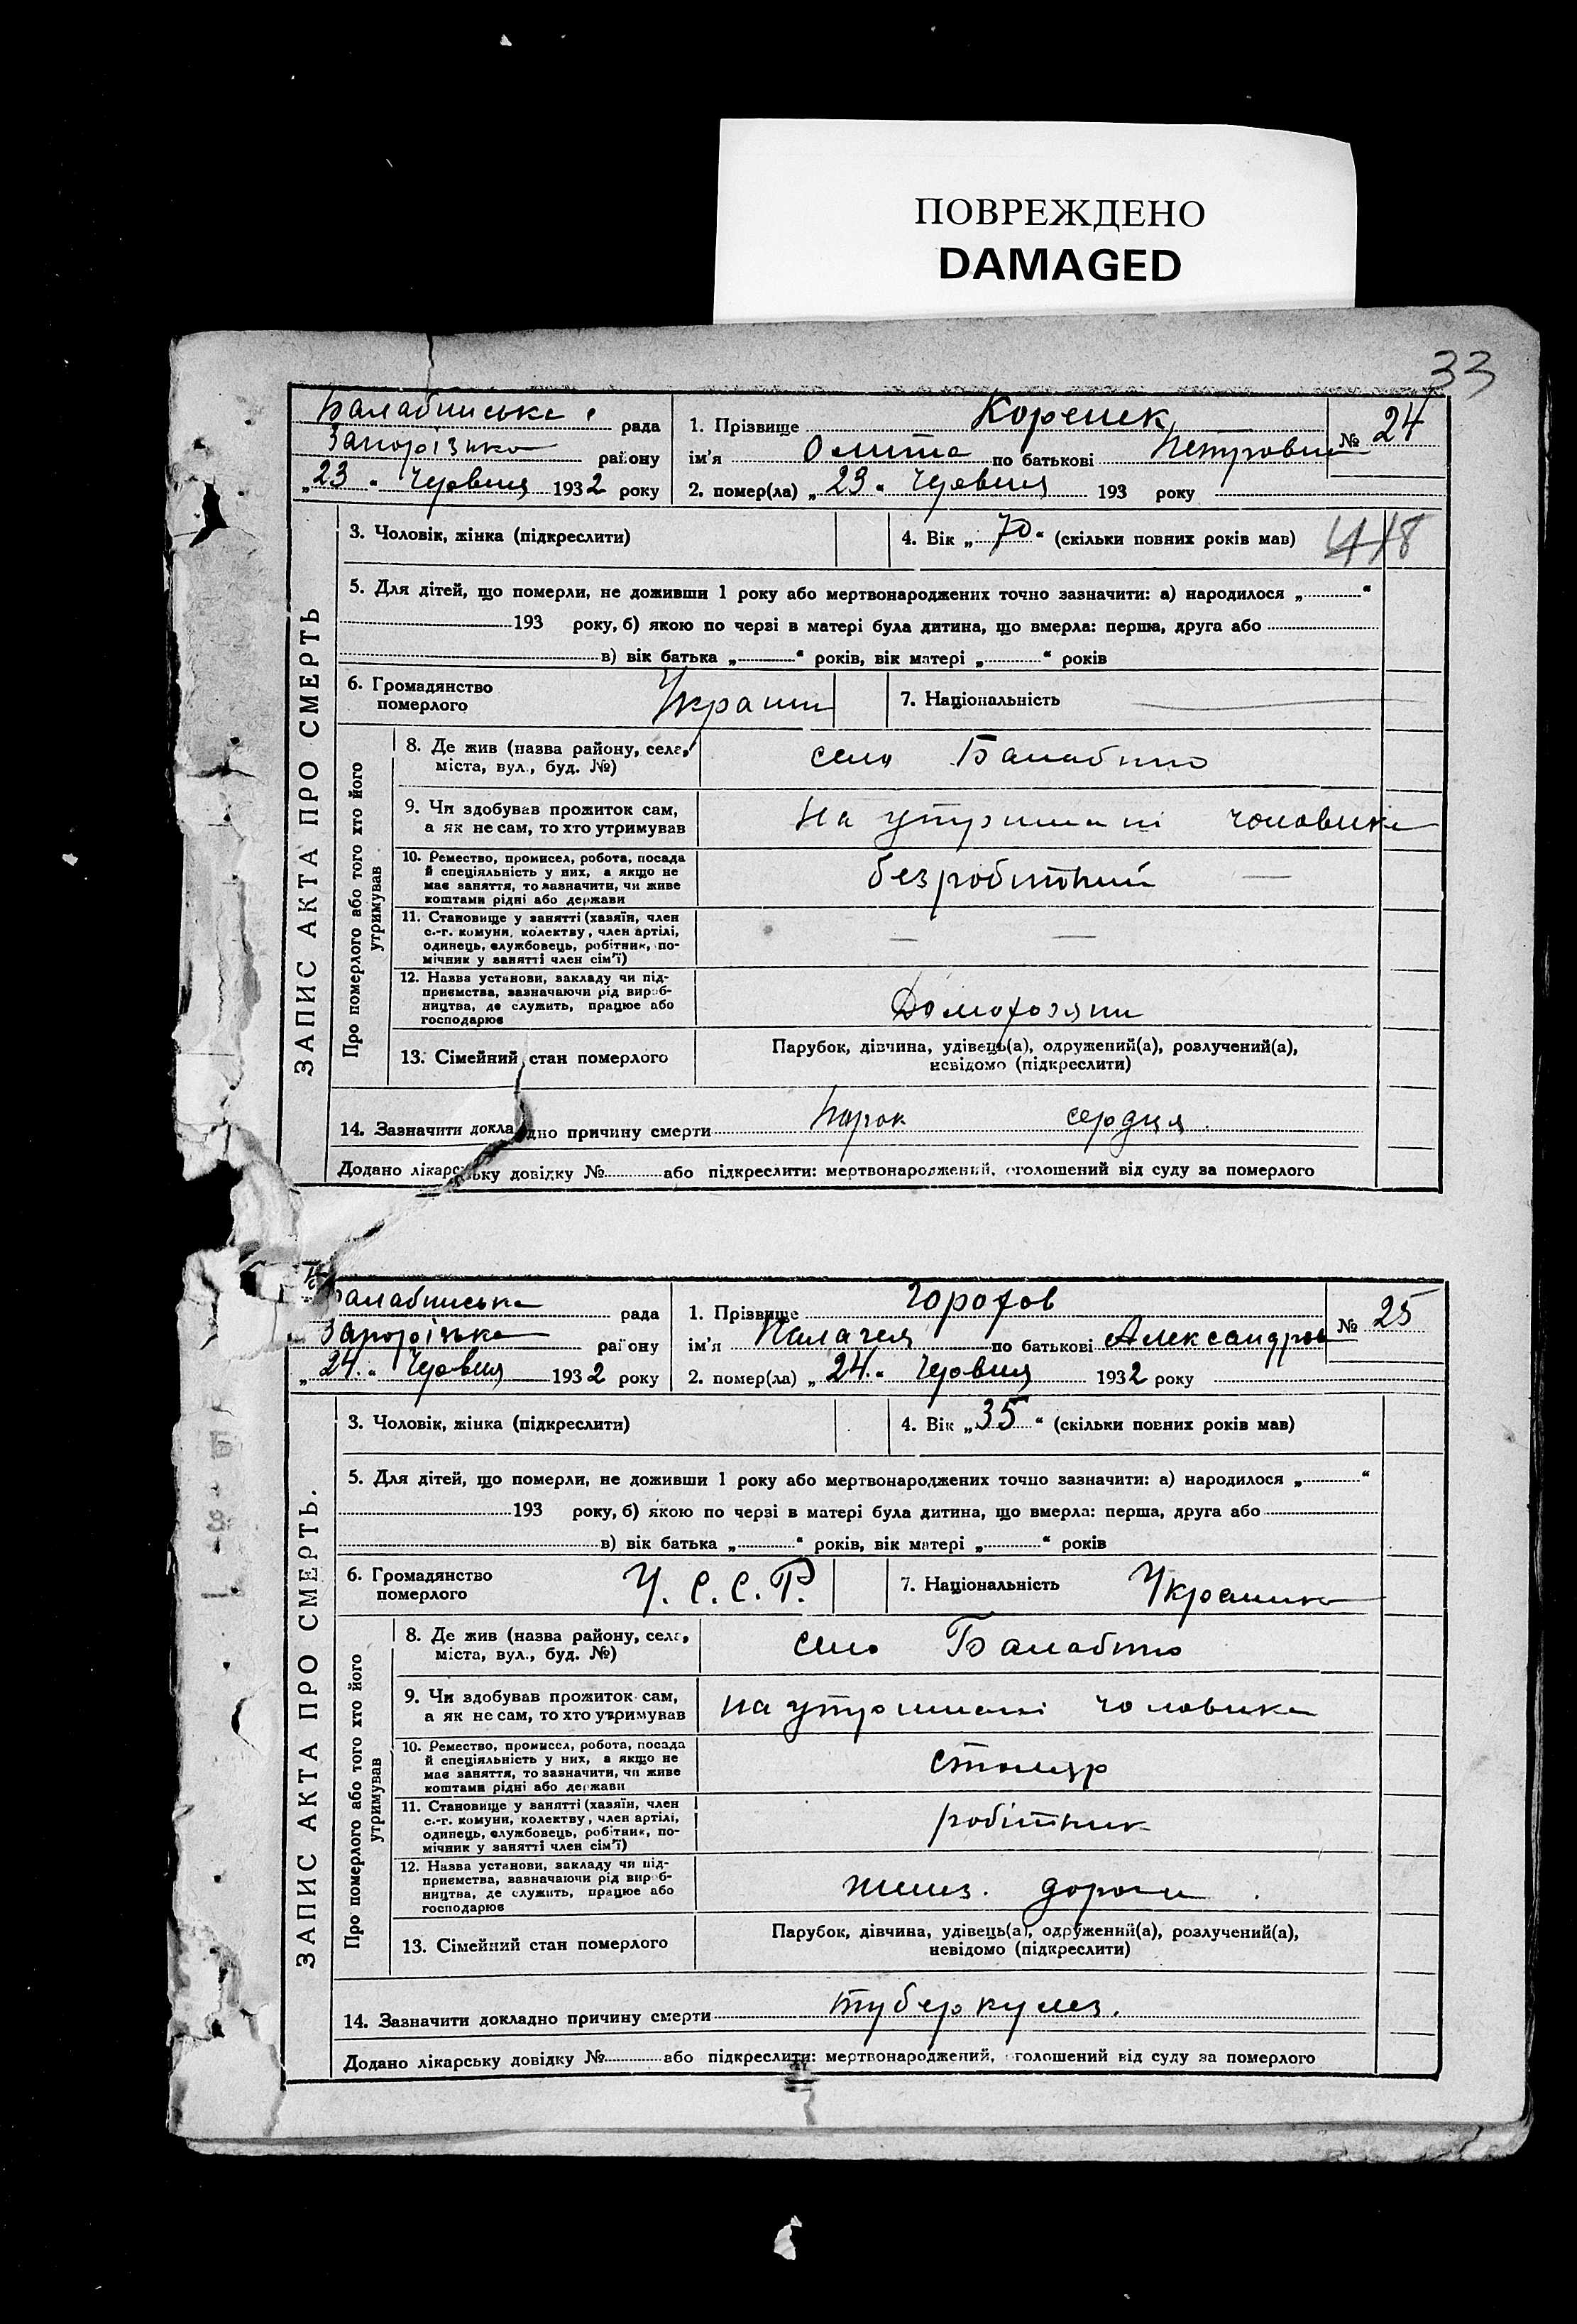 ПОВРЕЖДЕНО
DAMAGED
33
ЗАПИС АКТА ПРО СМЕРТЬ
Балабинська рада
Запорізька району
„23“ Червня 1932 року
1. Прізвище Корсик № 24
ім'я по батькові Петровна
2. помер(ла) „23“ Червня 193 року
3. Чоловік, жінка (підкреслити)
4. Вік „70“ (скільки повних років мав)
5. Для дітей, що померли, не доживши 1 року або мертвонароджених точно зазначити: а) народилося „ “
193 року, б) якою по черзі в матері була дитина, що вмерла: перша, друга або
в) вік батька „ “ років, вік матері „ “ років
6. Громадянство померлого
7. Національність
Про померлого або того хто його утримував
8. Де жив (назва району, села, село Балабино
міста, вул., буд. №)
9. Чи здобував прожиток сам, на утриманні чоловика
а як не сам, то хто утримував
10. Ремество, промисел, робота, посада
й спеціяльність у них, а якщо не безробітний —
має заняття, то зазначити, чи живе
коштами рідні або держави
11. Становище у занятті (хазяїн, член
с.-г. комуни, колективу, член артілі, — —
одинець, службовець, робітник, по-
мічник у занятті член сім'ї)
12. Назва установи, закладу чи під-
приємства, зазначаючи рід вироб-
ництва, де служить, працює або
господарює
13. Сімейний стан померлого Парубок, дівчина, удівець(а), одружений(а), розлучений(а),
невідомо (підкреслити)
14. Зазначити докладно причину смерти порок сердця.
Додано лікарську довідку № або підкреслити: мертвонароджений, оголошений від суду за померлого
ЗАПИС АКТА ПРО СМЕРТЬ.
Балабинська рада
Запорізька району
„24.“ Червня 1932 року
1. Прізвище Горохов № 25
ім'я Палагея по батькові Александров
2. помер(ла) „24.“ Червня 1932 року
3. Чоловік, жінка (підкреслити)
4. Вік „35“ (скільки повних років мав)
5. Для дітей, що померли, не доживши 1 року або мертвонароджених точно зазначити: а) народилося „ “
193 року, б) якою по черзі в матері була дитина, що вмерла: перша, друга або
в) вік батька „ “ років, вік матері „ “ років
6. Громадянство померлого У. С. С. Р.
7. Національність Українка
Про померлого або того хто його утримував
8. Де жив (назва району, села, село Балабино
міста, вул., буд. №)
9. Чи здобував прожиток сам, на утриманні чоловика
а як не сам, то хто утримував
10. Ремество, промисел, робота, посада
й спеціяльність у них, а якщо не столяр
має заняття, то зазначити, чи живе
коштами рідні або держави
11. Становище у занятті (хазяїн, член
с.-г. комуни, колективу, член артілі, робітник
одинець, службовець, робітник, по-
мічник у занятті член сім'ї)
12. Назва установи, закладу чи під-
приємства, зазначаючи рід вироб- желез. дороги
ництва, де служить, працює або
господарює
13. Сімейний стан померлого Парубок, дівчина, удівець(а), одружений(а), розлучений(а),
невідомо (підкреслити)
14. Зазначити докладно причину смерти туберкулез.
Додано лікарську довідку № або підкреслити: мертвонароджений, оголошений від суду за померлого